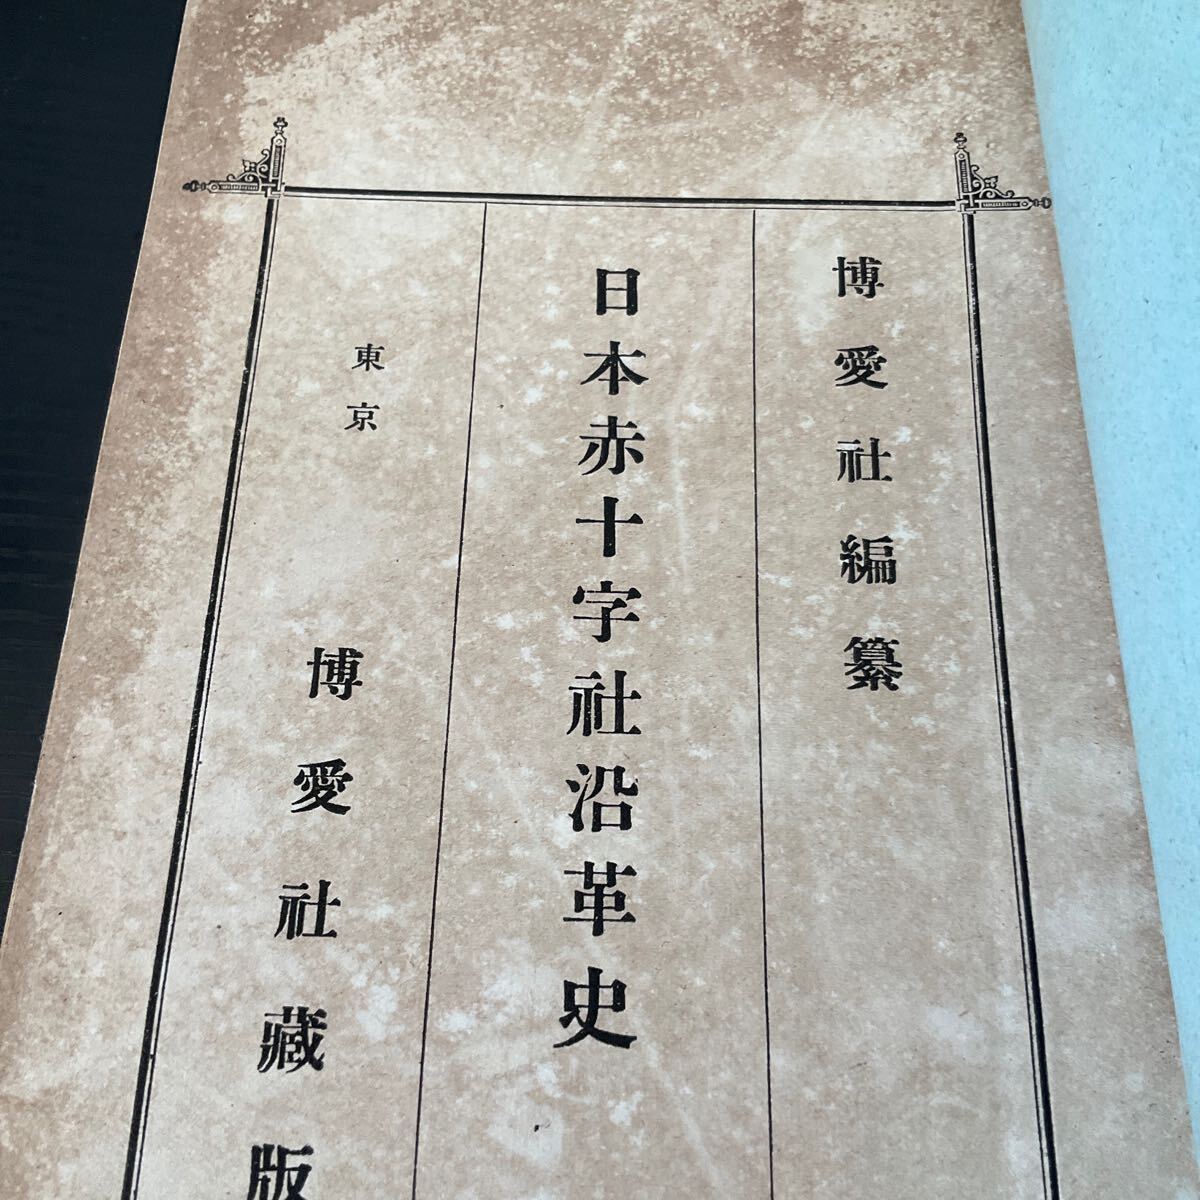 博愛社編纂
日本赤十字社沿革史
東京
博愛社藏版